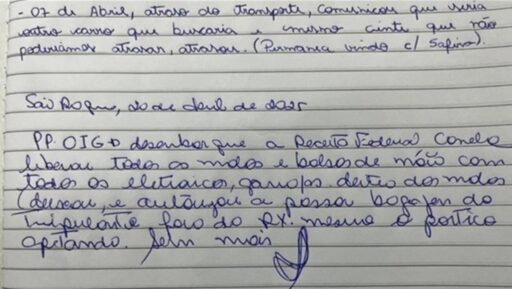 - 07 de Abril, atraso do transporte, comunicou que seria
outro carro que buscaria e mesmo cinte que não
poderíamos atrasar, atrasou. (Permanca vindo c/ Safira).
São Roque, 20 de abril de 2025
PP. OIG+ desembarque a Receita Federal
liberou todos os malas e bolsos de mão com
todos os eletronicos, dentro das malas
(deixou, e autorizou a passar bagagem do
tripulante fora do RX. mesmo o portico
apitando. Sem mais